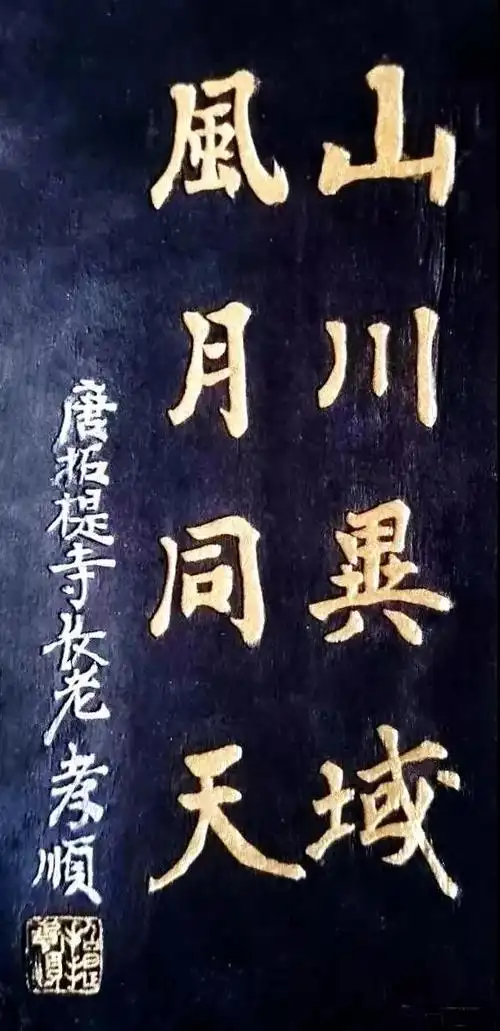 山川異域
風月同天
唐招提寺長老 孝順
招提
孝順